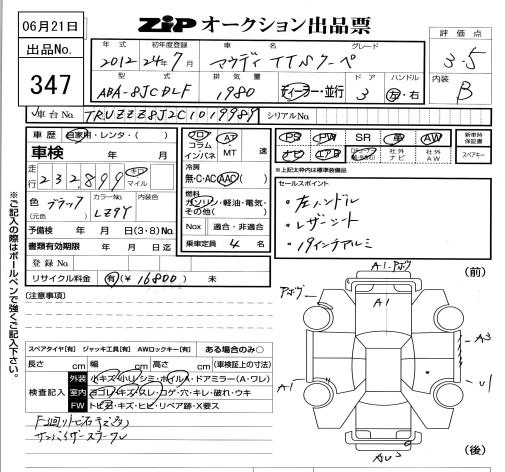 06月21日
ZIP オークション出品票
評価点
3.5
出品No.
347
年式 初年度登録 車名 グレード
2012 24年7月 アウディ TTSクーペ
型式 排気量 ドア ハンドル
ABA-8JCDLF 1980 ディーラー・並行 3 左・右
内装
B
車台No. TRUZZZ8J2C1019989 シリアルNo.
車歴 自家用・レンタ・( )
車検 年 月
走行 232,899 キロ マイル
色 (元色) ブラック カラーNo. LZ9Y 内装色
予備検 年 月 日(3・8)No.
書類有効期限 年 月 日迄
登録No.
リサイクル料金 有(¥ 16800) 未
フロア コラム インパネ AT ・MT 速
冷房
無・C・AC・AAC( )
燃料
ガソリン・軽油・電気・その他( )
Nox 適合・非適合
乗車定員 4 名
PS PW SR 革 AW 新車時保証書
ナビ エアB 社外ナビ 社外AW スペアキー
※上記太枠内は標準装備品
セールスポイント
・左ハンドル
・レザーシート
・19インチアルミ
※ご記入の際はボールペンで強くご記入下さい。
(注意事項)
スペアタイヤ[有] ジャッキ工具[有] AWロックキー[有] ある場合のみ○
長さ cm 幅 cm 高さ cm (車検証上の寸法)
検査記入
外装 小キズ・小凹・シミ・ホイルA・ドアミラー(A・ワレ)
室内 ヨゴレ・キズ・スレ・コゲ・穴・キレ・破れ・ウキ
FW トビ石・キズ・ヒビ・リペア跡・X要ス
サンバイザーステークレ
(前)
A1
A3
A1
U1
(後)